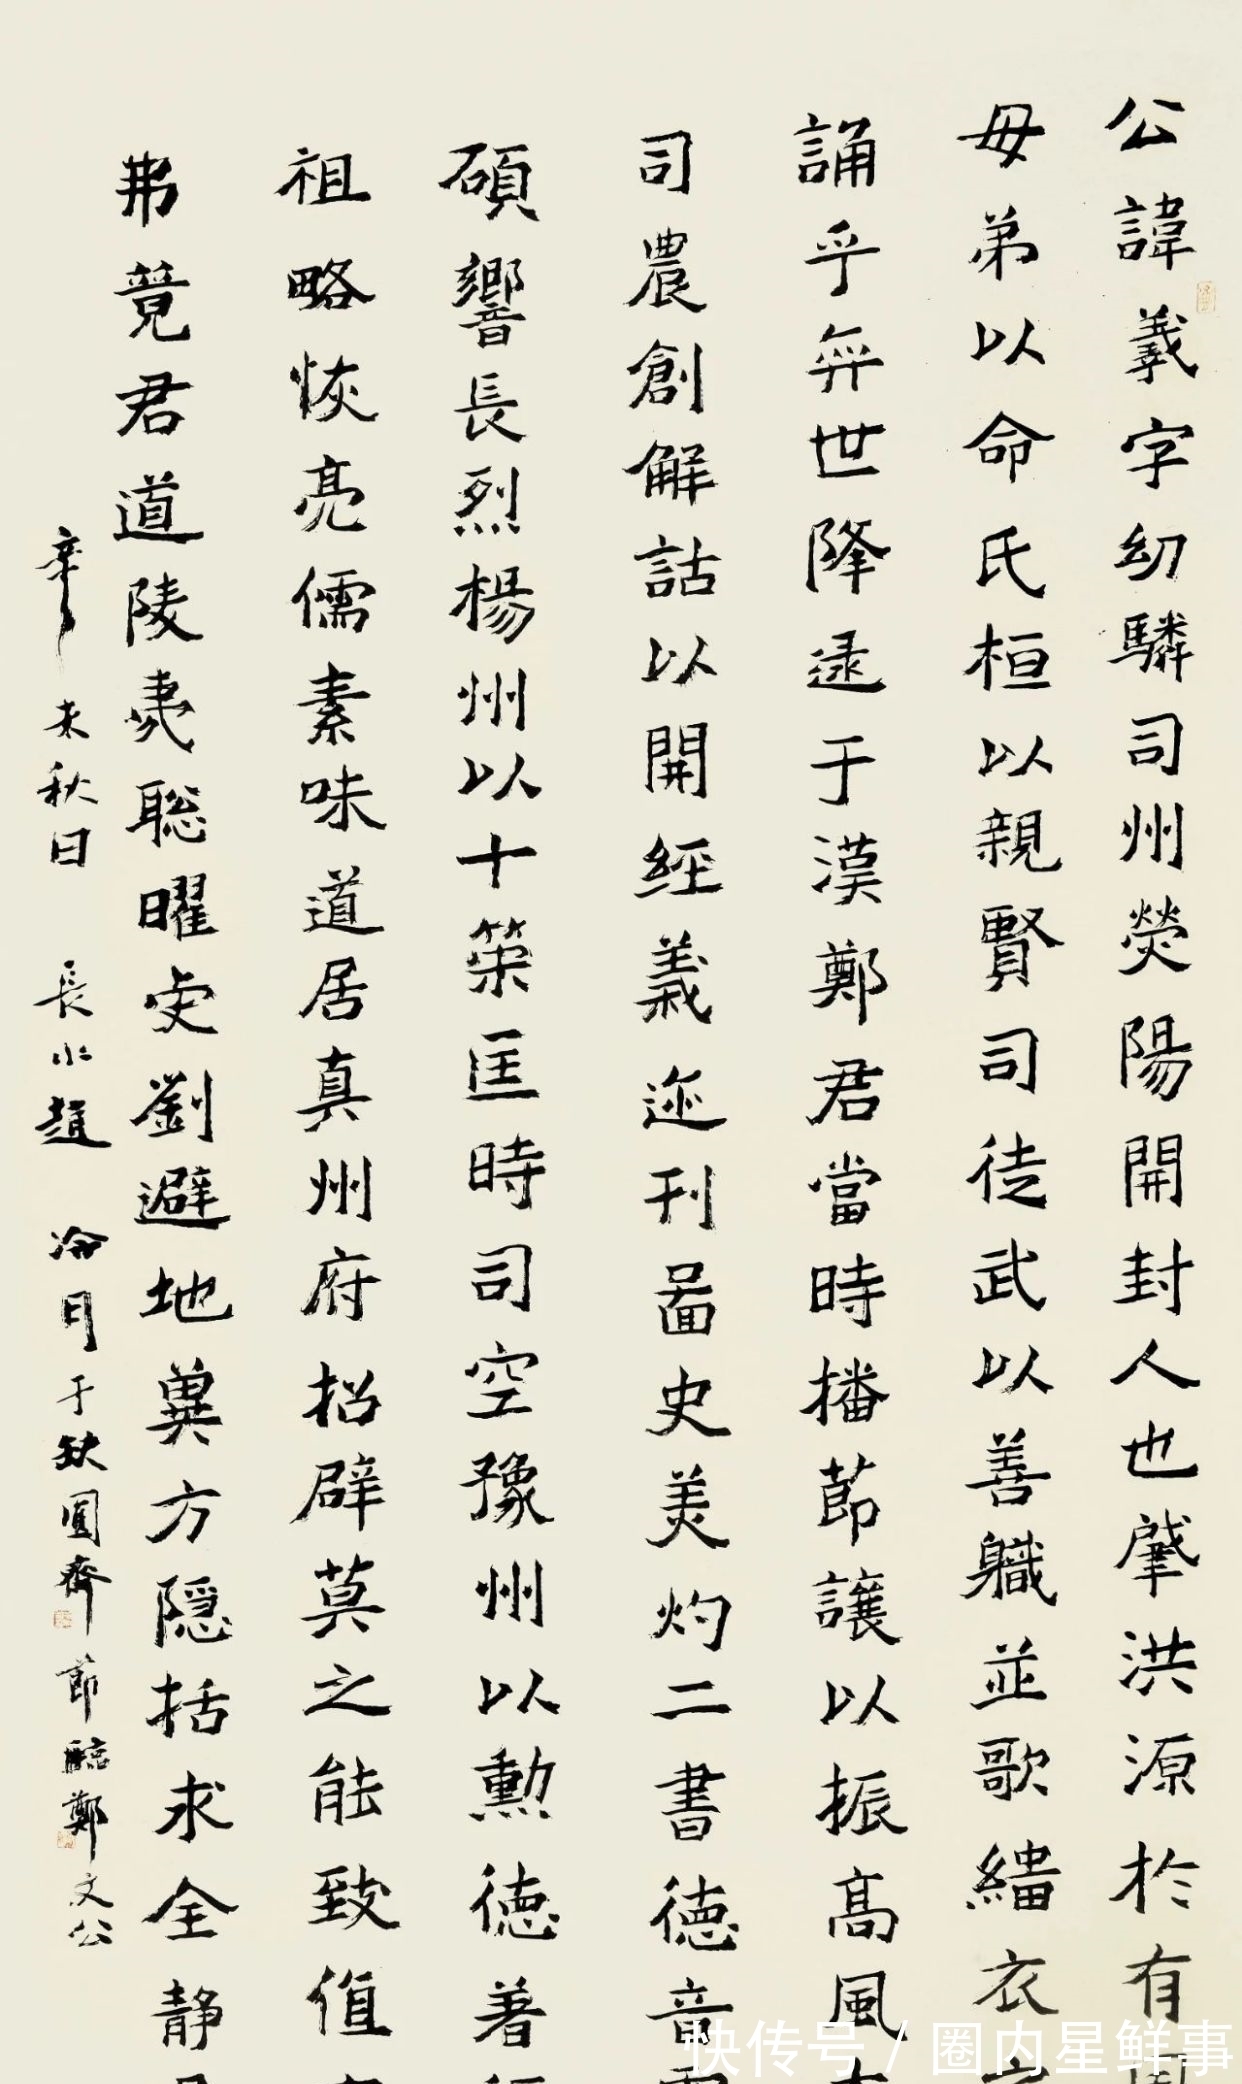 公諱羲字幼驎司州熒陽開封人也肇洪源於有周
母弟以命氏桓以親賢司徒武以善職並歌緇衣
誦乎奕世降逮于漢鄭君當時播節讓以振高風
司農創解詁以開經義迹刊圖史美灼二書德音
碩響長烈楊州以十策匡時司空豫州以勲德著
祖略恢亮儒素味道居真州府招辟莫之能致值
弗竟君道陵夷聡曜虔劉避地兾方隱括求全靜
辛未秋日 長水趙 冷月于缺圓齋節臨鄭文公
快传号/圈内星鲜事